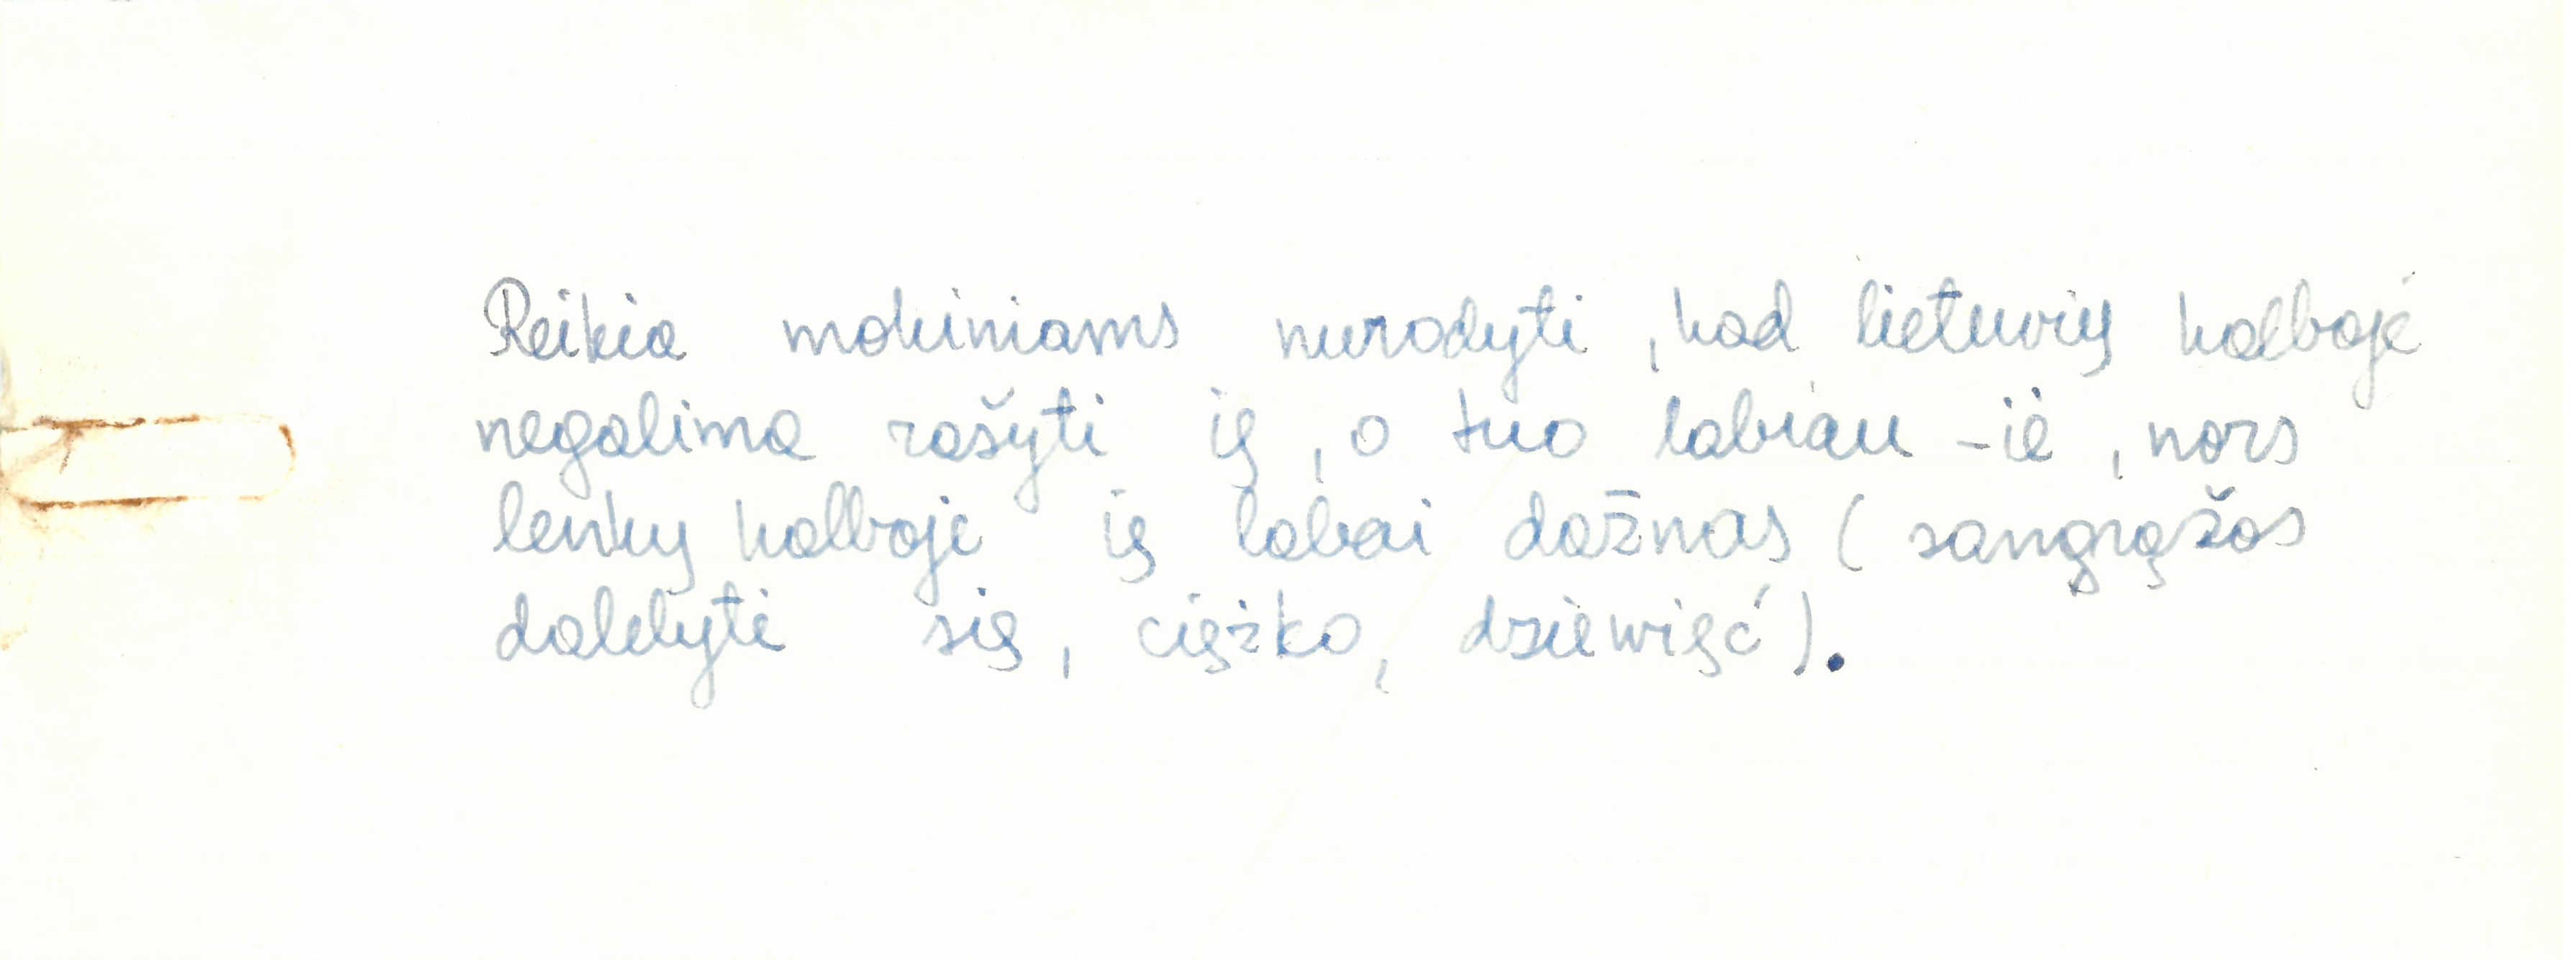 Reikia mokiniams nurodyti, kad lietuvių kalboje
negalima rašyti ię, o tuo labiau -iė, nors
lenkų kalboje ię labai dažnas (sangrąžos
dalelytė się, ciężko, dziewięć).